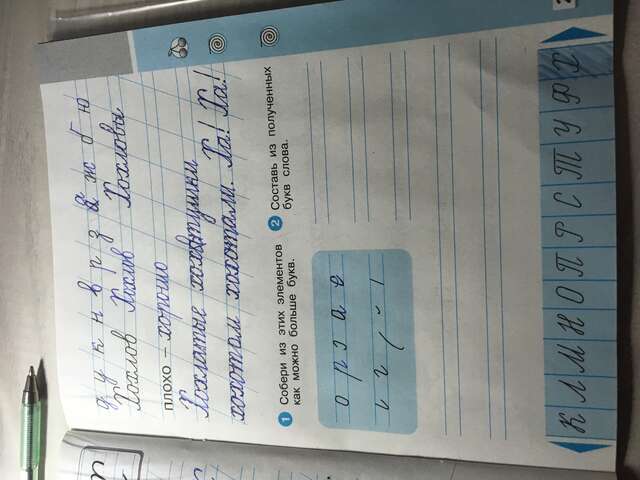 д у к н в р з а ж б ю
Хохлов Хохлов Хохловы
плохо – хорошо
Хохлатые хохотушки
хохотом хохотали. Ха! Ха!
1 Собери из этих элементов как можно больше букв.
2 Составь из полученных букв слова.
о р з а е
К Л М Н О П Р С Т У Ф Х